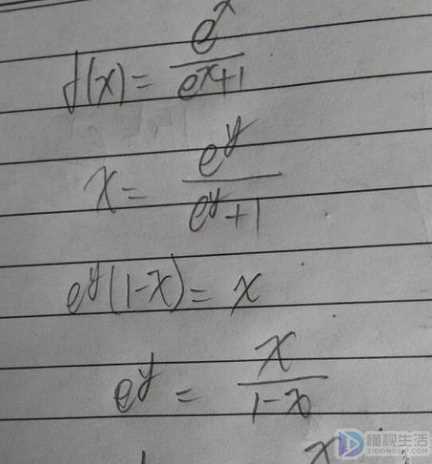 f(x) = e^x / (e^x+1)
x = e^y / (e^y+1)
e^y(1-x) = x
e^y = x / (1-x)
x
橫視生活